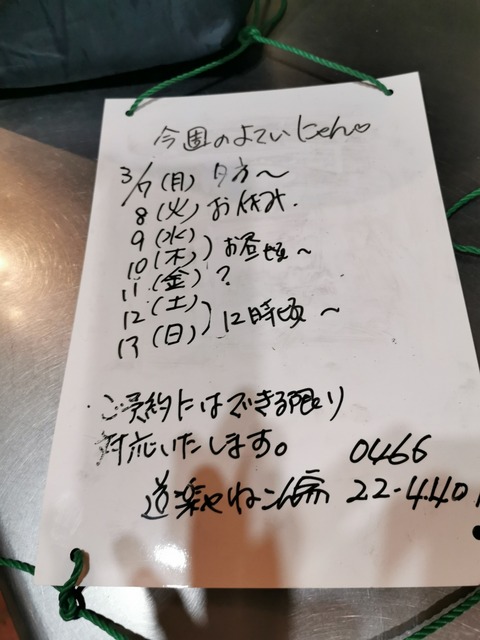 今週のよていにゃん。
3/7(月) 夕方〜
8(火) お休み.
9(水)
10(木) お昼頃〜
11(金) ?
12(土)
13(日) 12時頃〜
ご予約にはできる限り
対応いたします。 0466
道楽やねこ 22-440